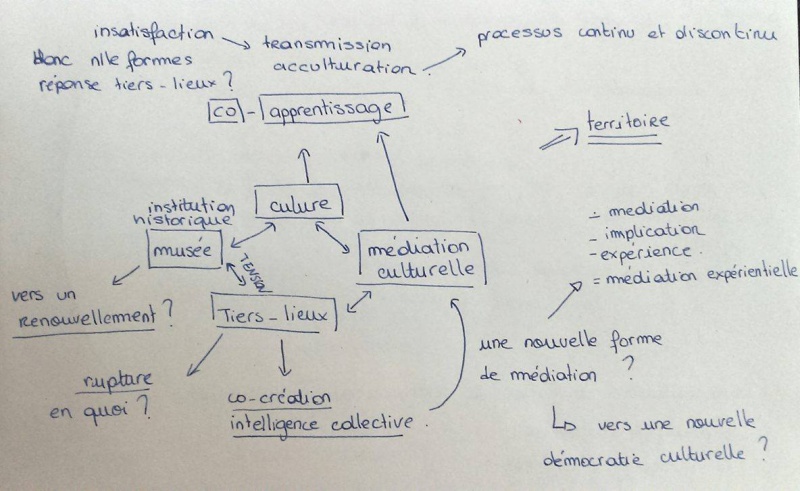 insatisfaction
donc nlle formes
réponse tiers-lieux ?
transmission
acculturation
processus continu et discontinu
co - apprentissage
territoire
culure
institution
historique
musée
médiation
culturelle
TENSION
Tiers-lieux
vers un
RENOUVELLEMENT ?
rupture
en quoi ?
co-création
intelligence collective.
- mediation
- implication
- expérience.
= médiation expérientielle
une nouvelle forme
de médiation ?
vers une nouvelle
démocratie culturelle ?